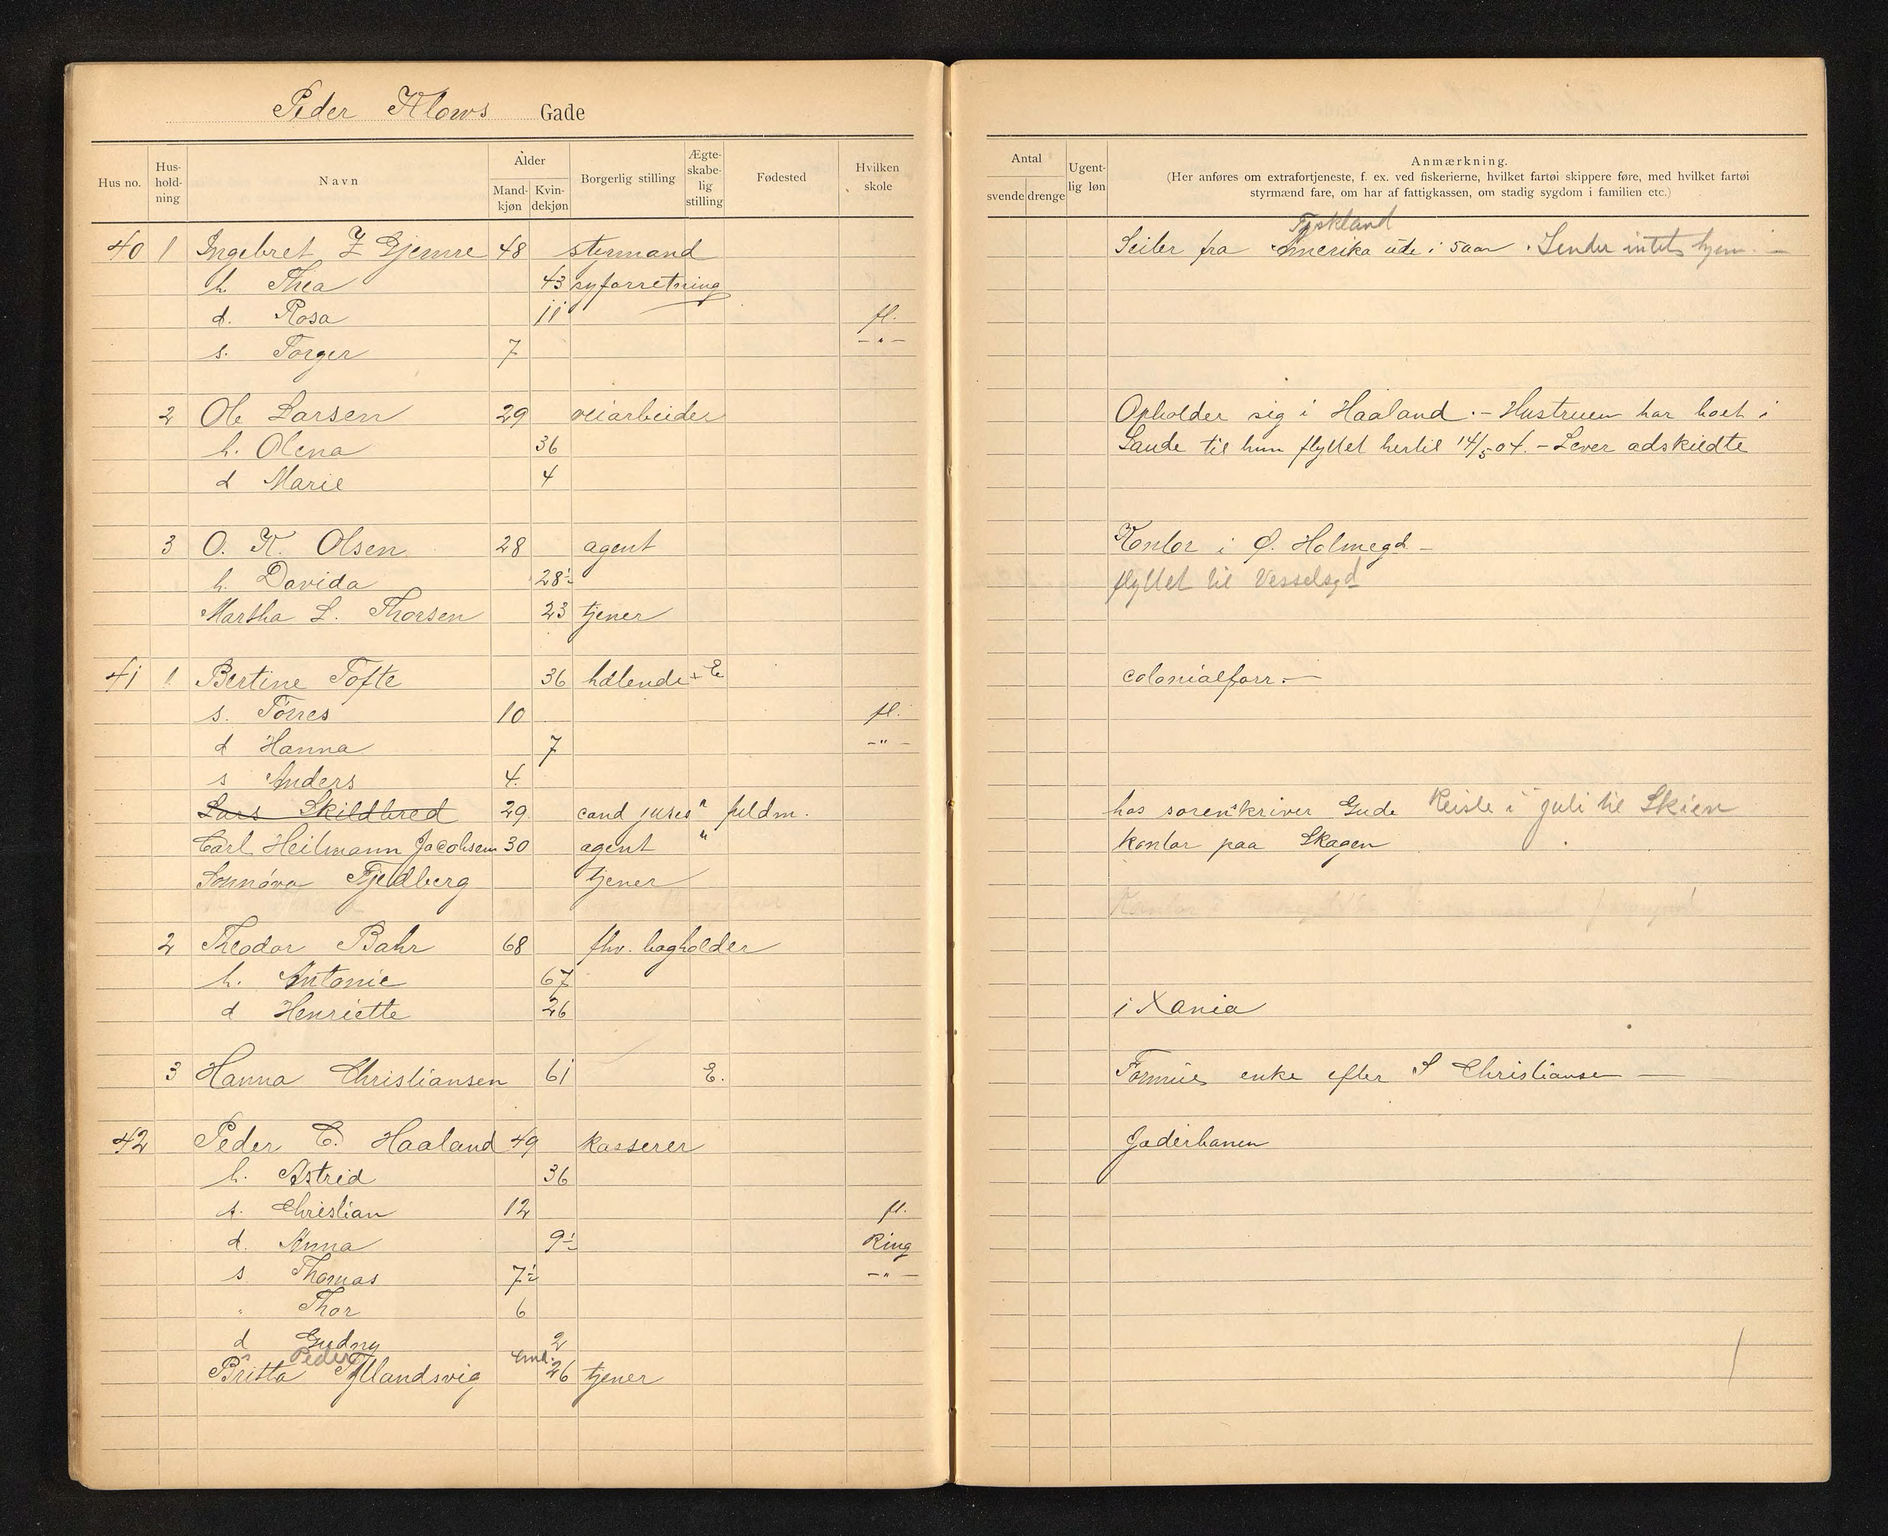 Peder Klows Gade
Hus no. Hus-hold-ning Navn Alder Mand-kjøn Kvin-dekjøn Borgerlig stilling Ægte-skabe-lig stilling Fødested Hvilken skole
Antal svende drenge Ugent-lig løn Anmærkning.
(Her anføres om extrafortjeneste, f. ex. ved fiskerierne, hvilket fartøi skippere føre, med hvilket fartøi
styrmænd fare, om har af fattigkassen, om stadig sygdom i familien etc.)
Tyskland
40 1 Ingebret Z Gjemre 48 styrmand Seiler fra Amerika ude i 5 aar. Sender intet hjem. —
h. Thea 43 syforretning
d. Rosa 11 fl.
s. Torger 7 — " —
2 Ole Larsen 29 veiarbeider Opholder sig i Haaland. — Hustruen har boet i
h. Olena 36 Sande til hun flyttet hertil 14/5 04. — Lever adskildte
d Marie 4
3 O. K. Olsen 28 agent Kontor i Ø. Holmegd —
h. Davida 28½ flyttet til Vesselsgd
Martha L. Thorsen 23 tjener
41 1. Bertine Tofte 36 hdlende E colonialforr. —
s. Torres 10 fl.
d Hanna 7 — " —
s Anders 4.
Lars Skildbred 29 cand juris " fuldm. hos sorenskriver Gude Reiste i juli til Skien
Carl Heilmann Jacobsen 30 agent " kontor paa Skagen
Sonnøva Fjeldberg tjener
2 Theodor Bahr 68 fhv. bogholder
h. Antonie 67
d Henriette 26 i Xania
3 Hanna Christiansen 61 E. Formue enke efter S Christiansen —
42 Peder C. Haaland 49 kasserer Jæderbanen
h. Astrid 36
s. Christian 12 fl.
d. Anna 9½ Ring
s Thomas 7½ — " —
" Thor 6
d Gudny 2
s Peder
Britta Tyllandsvig 26 tjener